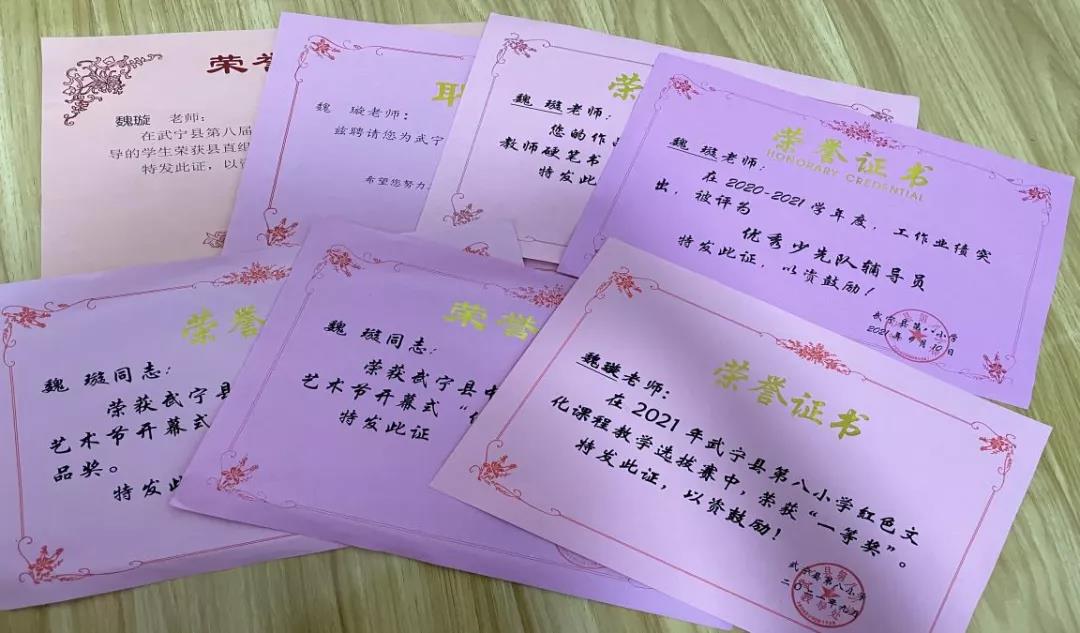 荣誉
魏璇 老师:
在武宁县第八届
导的学生荣获县直组
特发此证,以资
聘
魏 璇老师:
兹聘请您为武宁
希望您努力
荣
魏 璇老师:
您的作品
教师硬笔书
特发此证
荣誉证书
HONORARY CREDENTIAL
魏 璇老师:
在2020-2021学年度,工作业绩突
出,被评为
优秀少先队辅导员
特发此证,以资鼓励!
武宁县第八小学
2021年9月10日
荣誉
魏 璇同志:
荣获武宁县
艺术节开幕式
品奖。
特发此
荣誉
魏 璇同志:
荣获武宁县
艺术节开幕式“优
特发此证
荣誉证书
魏璇老师:
在2021年武宁县第八小学红色文
化课程教学选拔赛中,荣获“一等奖”。
特发此证,以资鼓励!
武宁县第八小学